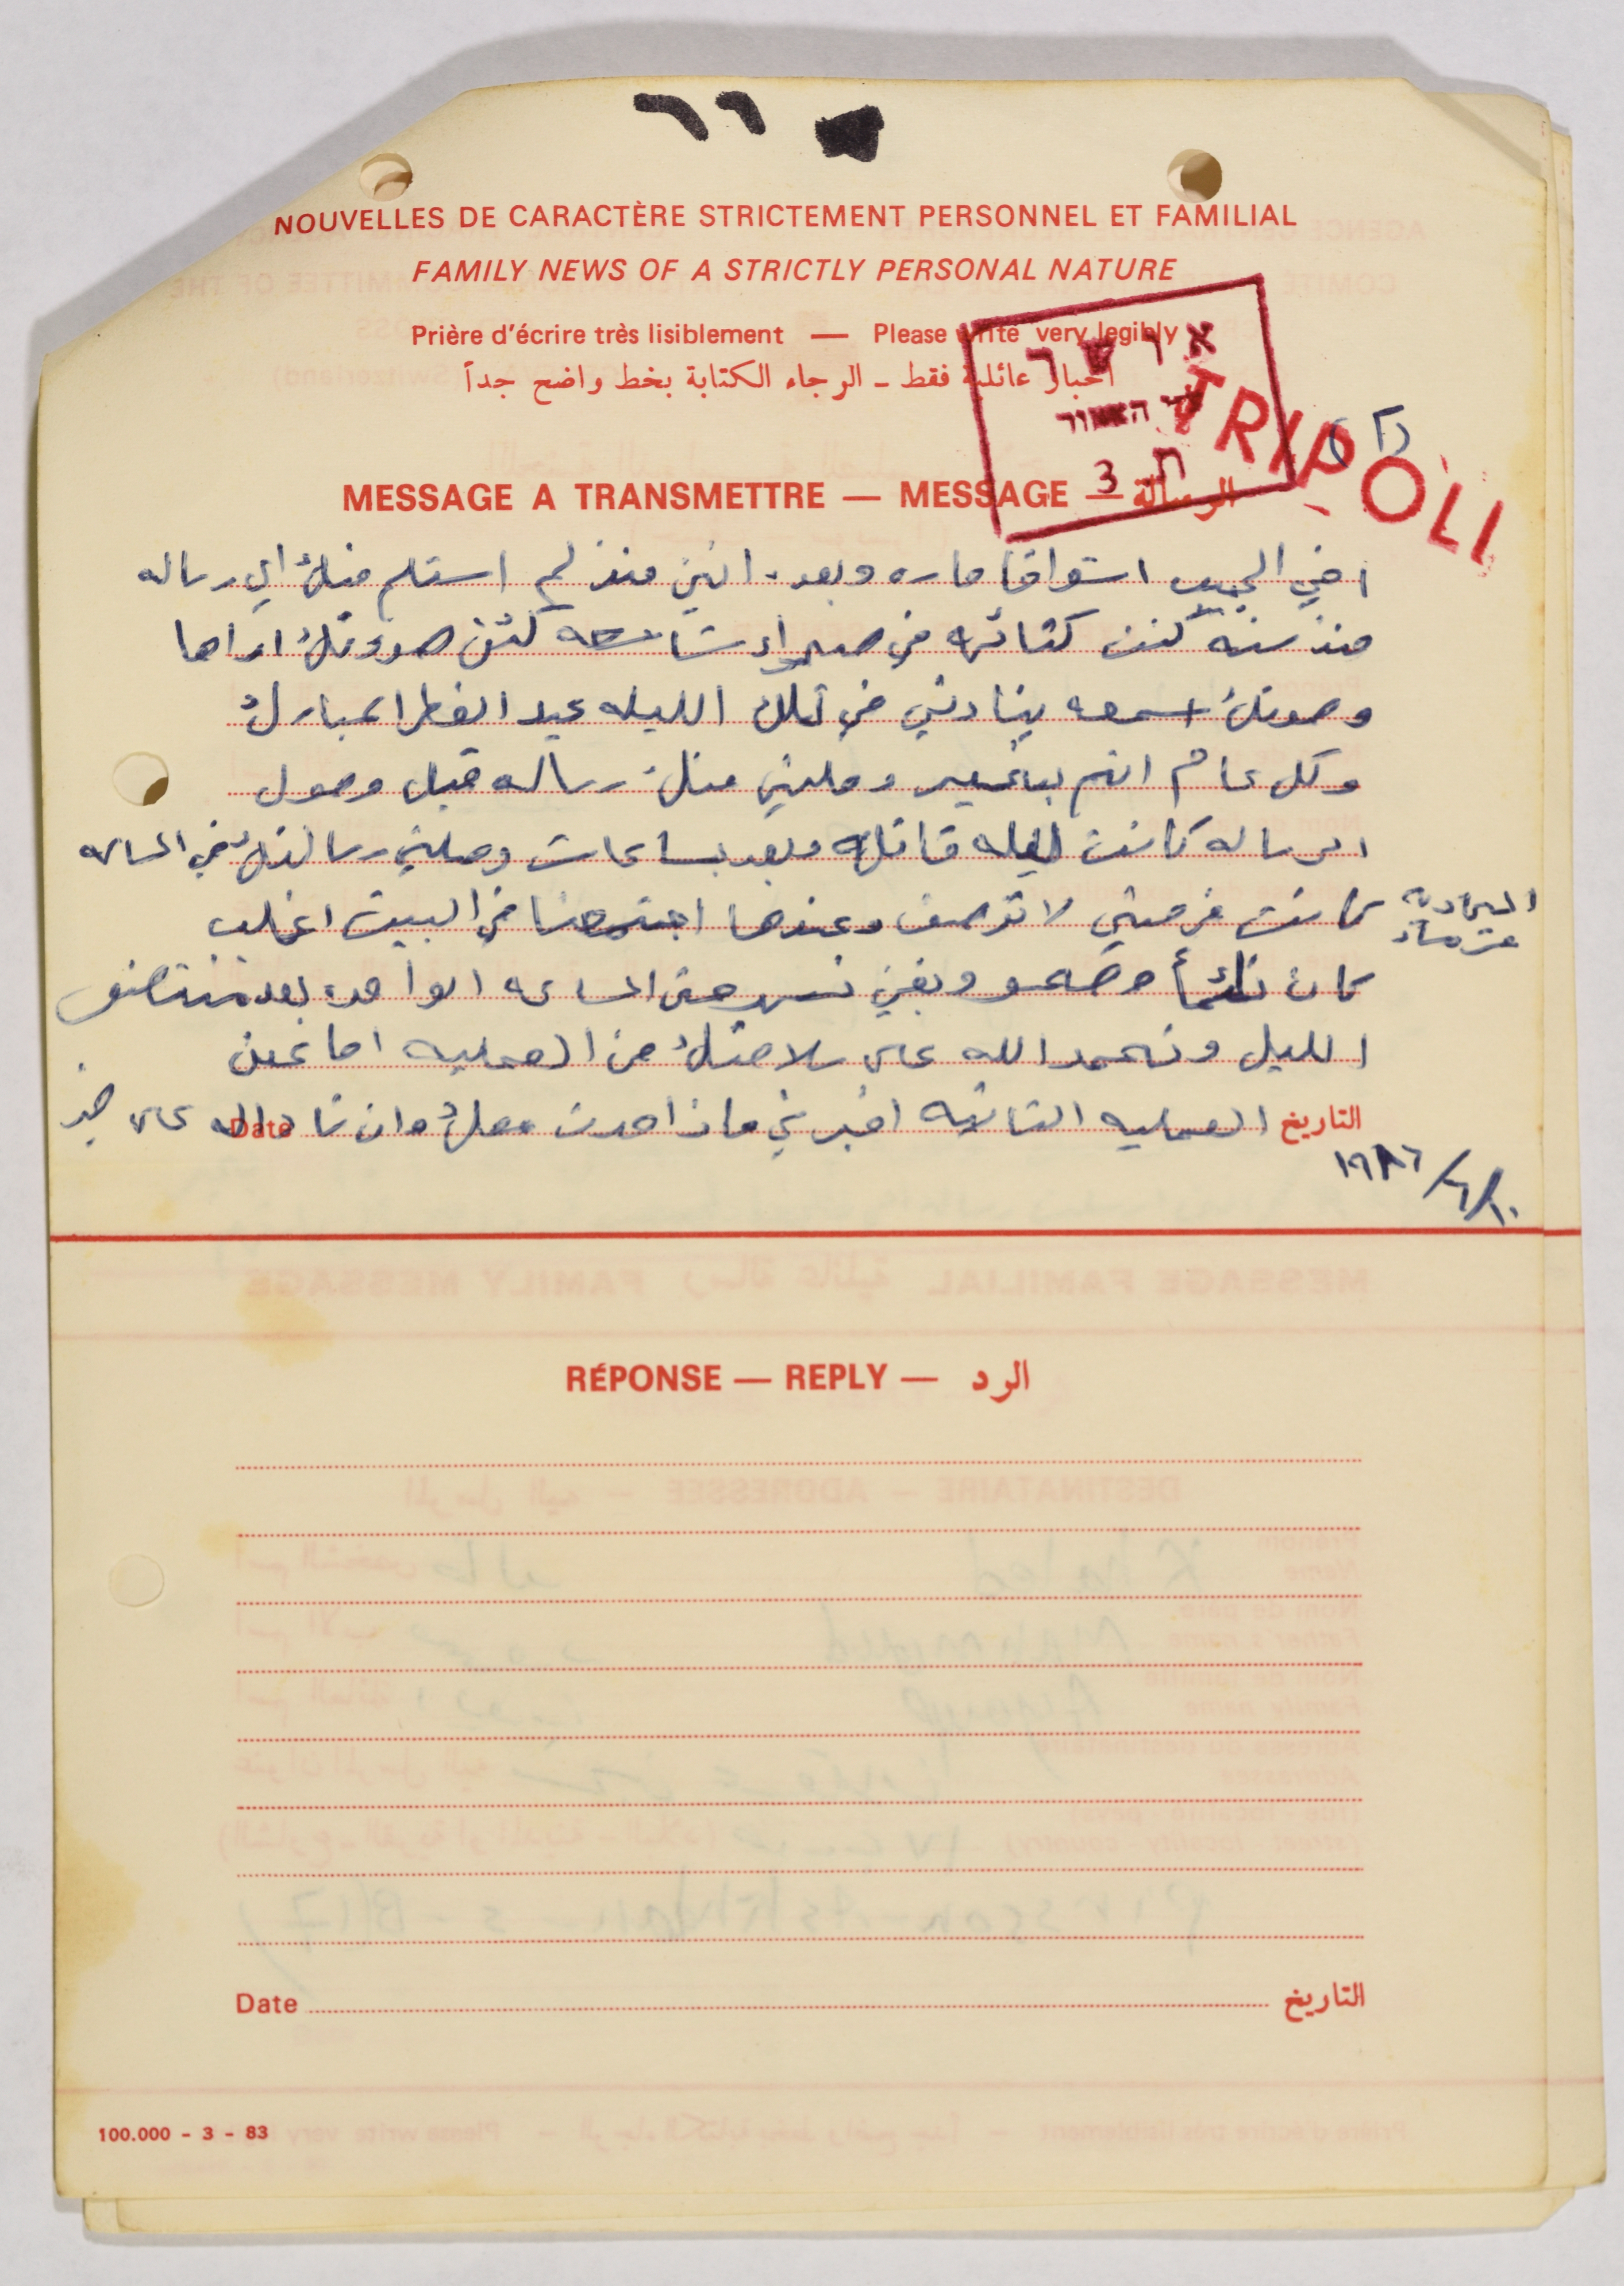 ٦٦
NOUVELLES DE CARACTÈRE STRICTEMENT PERSONNEL ET FAMILIAL
FAMILY NEWS OF A STRICTLY PERSONAL NATURE
Prière d'écrire très lisiblement — Please write very legibly
اخبار عائلية فقط ـ الرجاء الكتابة بخط واضح جداً
TRIPOLI
(٢)
ת 3
MESSAGE A TRANSMETTRE — MESSAGE — الرسالة
اخي الحبيب اشواقا حاره وبعد. انني منذ لم استلم منك اي رساله
منذ سنه كنت كتائه في صحراء شاسعه لكن صورتك اراها
وصوتك اسمعه يناديني في تلك الليله عيد الفطر المبارك
وكل عام انتم بخير وصلني منك رساله قبل وصول
الرساله كانت ليله قاتله وبعد ساعات وصلني رسالتك في الساعه
الحاديه عشر مساء
كانت فرحتي لا توصف وعندها اجتمعنا في البيت اغلب
كان نائماً وضحو وبقي نسهر حتى الساعه الواحده بعد منتصف
الليل ونحمد الله على سلامتك من العمليه اما عن
العمليه الثانيه اخبرني ماذا حدث معك وان شاء الله على خير
التاريخ Date
١٩٨٦/٦/١٠
RÉPONSE — REPLY — الرد
Date التاريخ
100.000 - 3 - 83